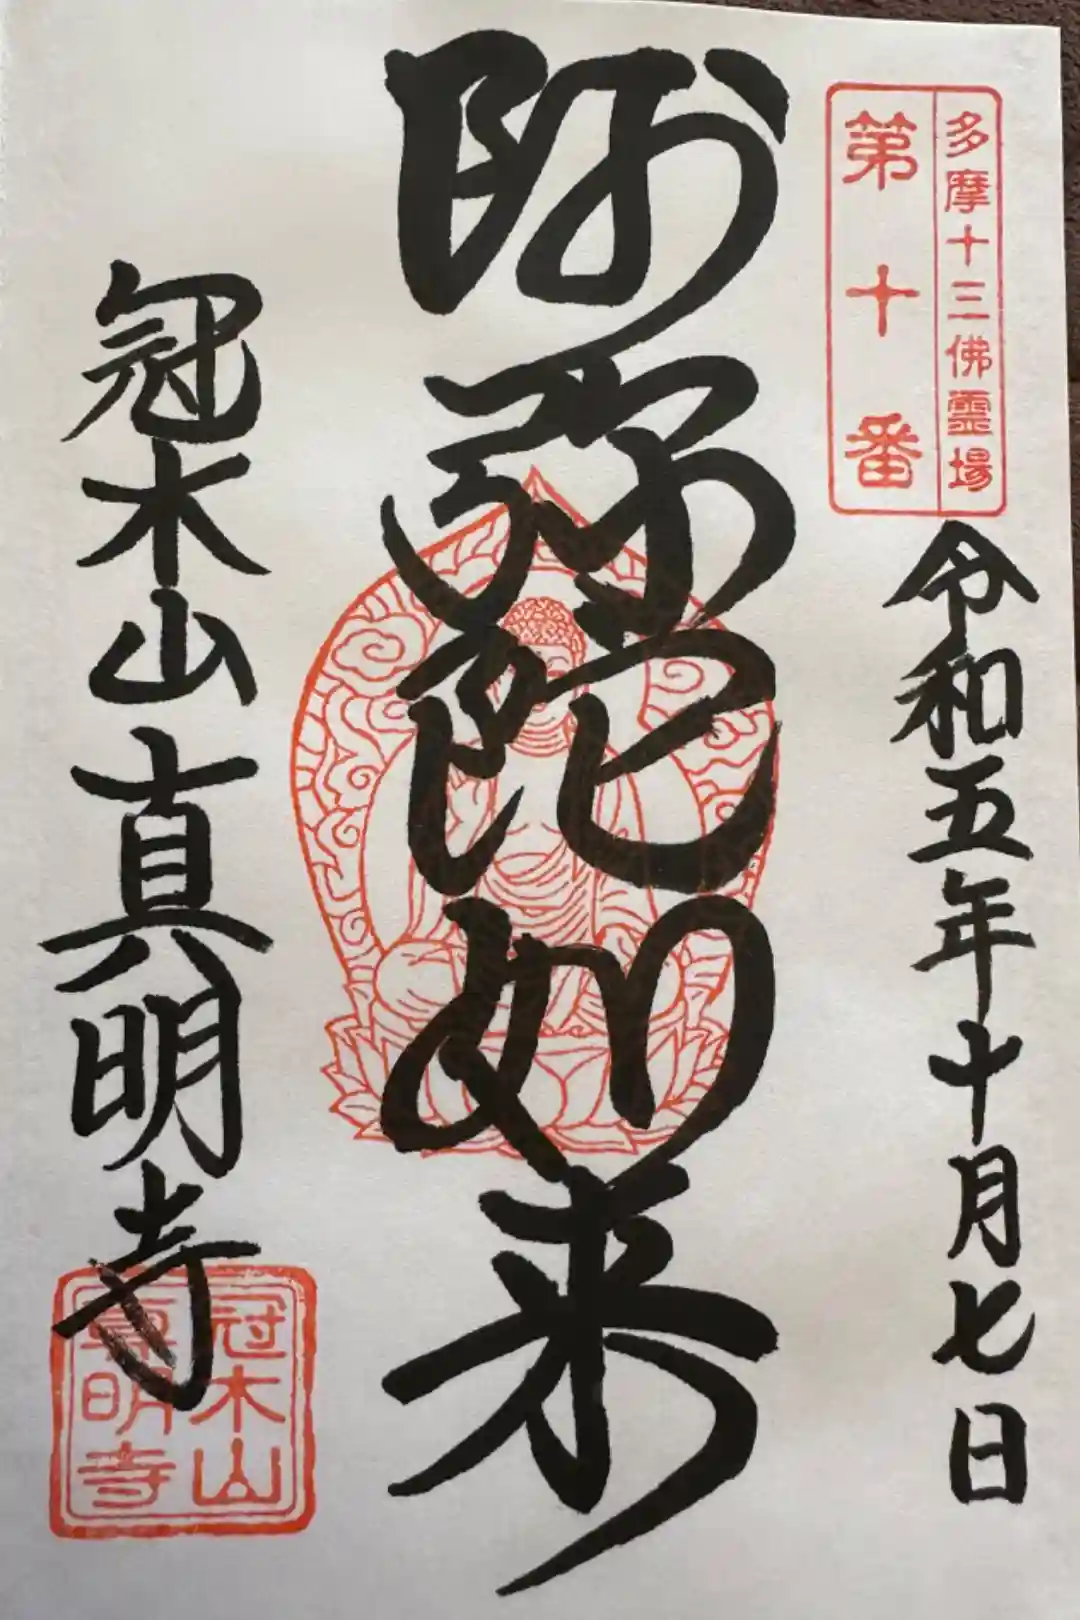 多摩十三佛霊場
第十番
令和五年十月七日
阿弥陀如来
冠木山真明寺
冠木山
真明寺